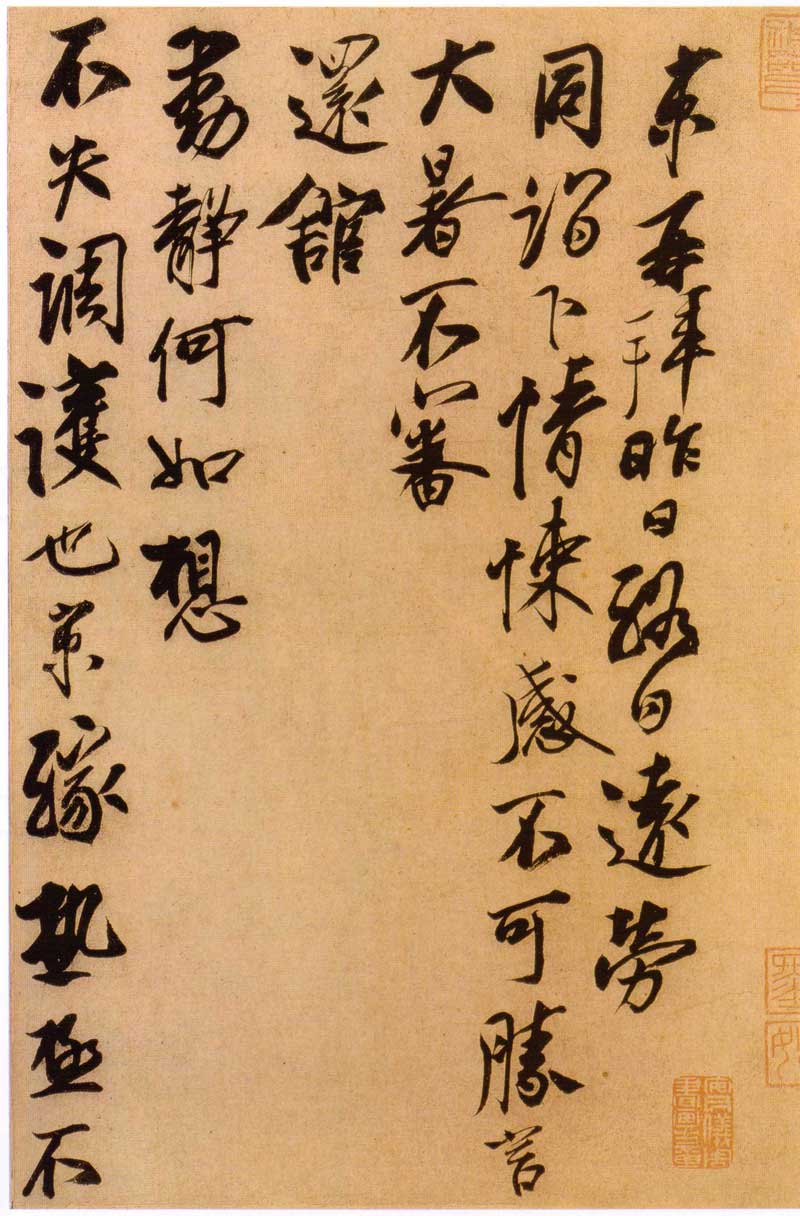 京再拜昨日終日遠勞
同詣下情悚感不可勝言
大暑不審
還舘
動靜何如想
不失調護也京緣熱極不